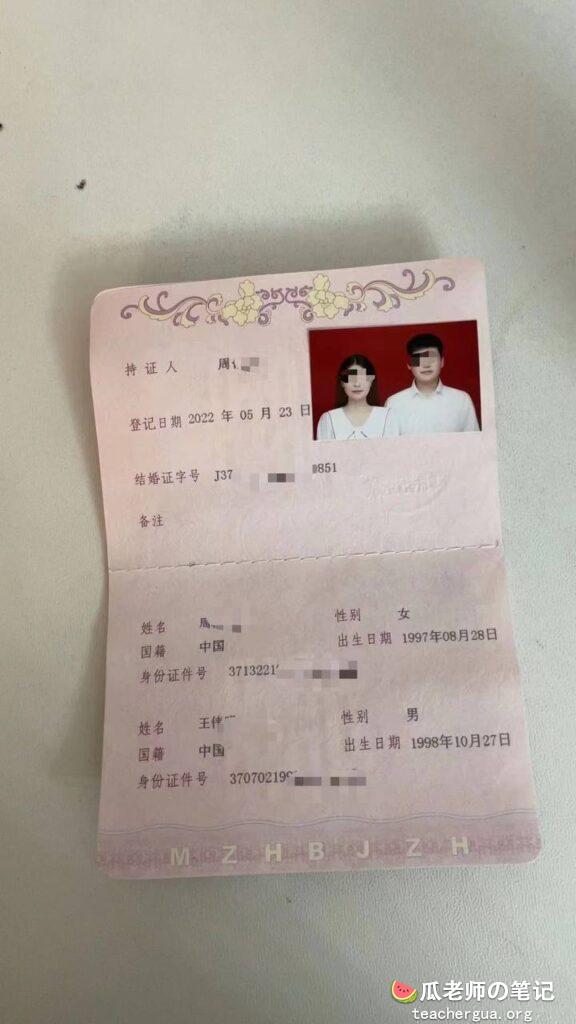 持证人 周
登记日期 2022 年 05 月 23 日
结婚证字号 J37 851
备注
姓名 性别 女
国籍 中国 出生日期 1997年08月28日
身份证件号 3713221
姓名 王 性别 男
国籍 中国 出生日期 1998年10月27日
身份证件号 370702199
MZHBJZH
瓜老师の笔记
teachergua.org